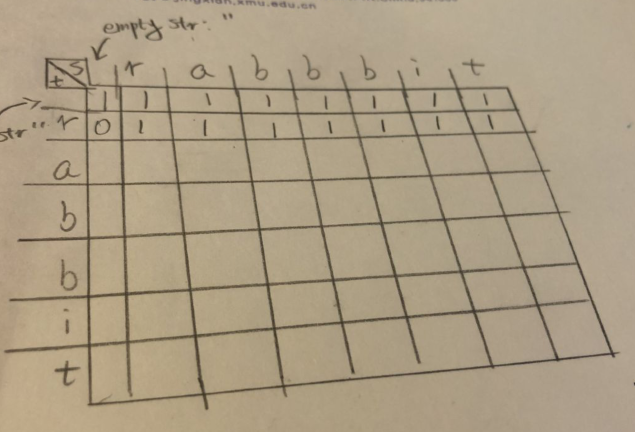 xmu.edu.cn
empty str: "
t S r a b b b i t
1 1 1 1 1 1 1 1
str" r 0 1 1 1 1 1 1 1
a
b
b
i
t